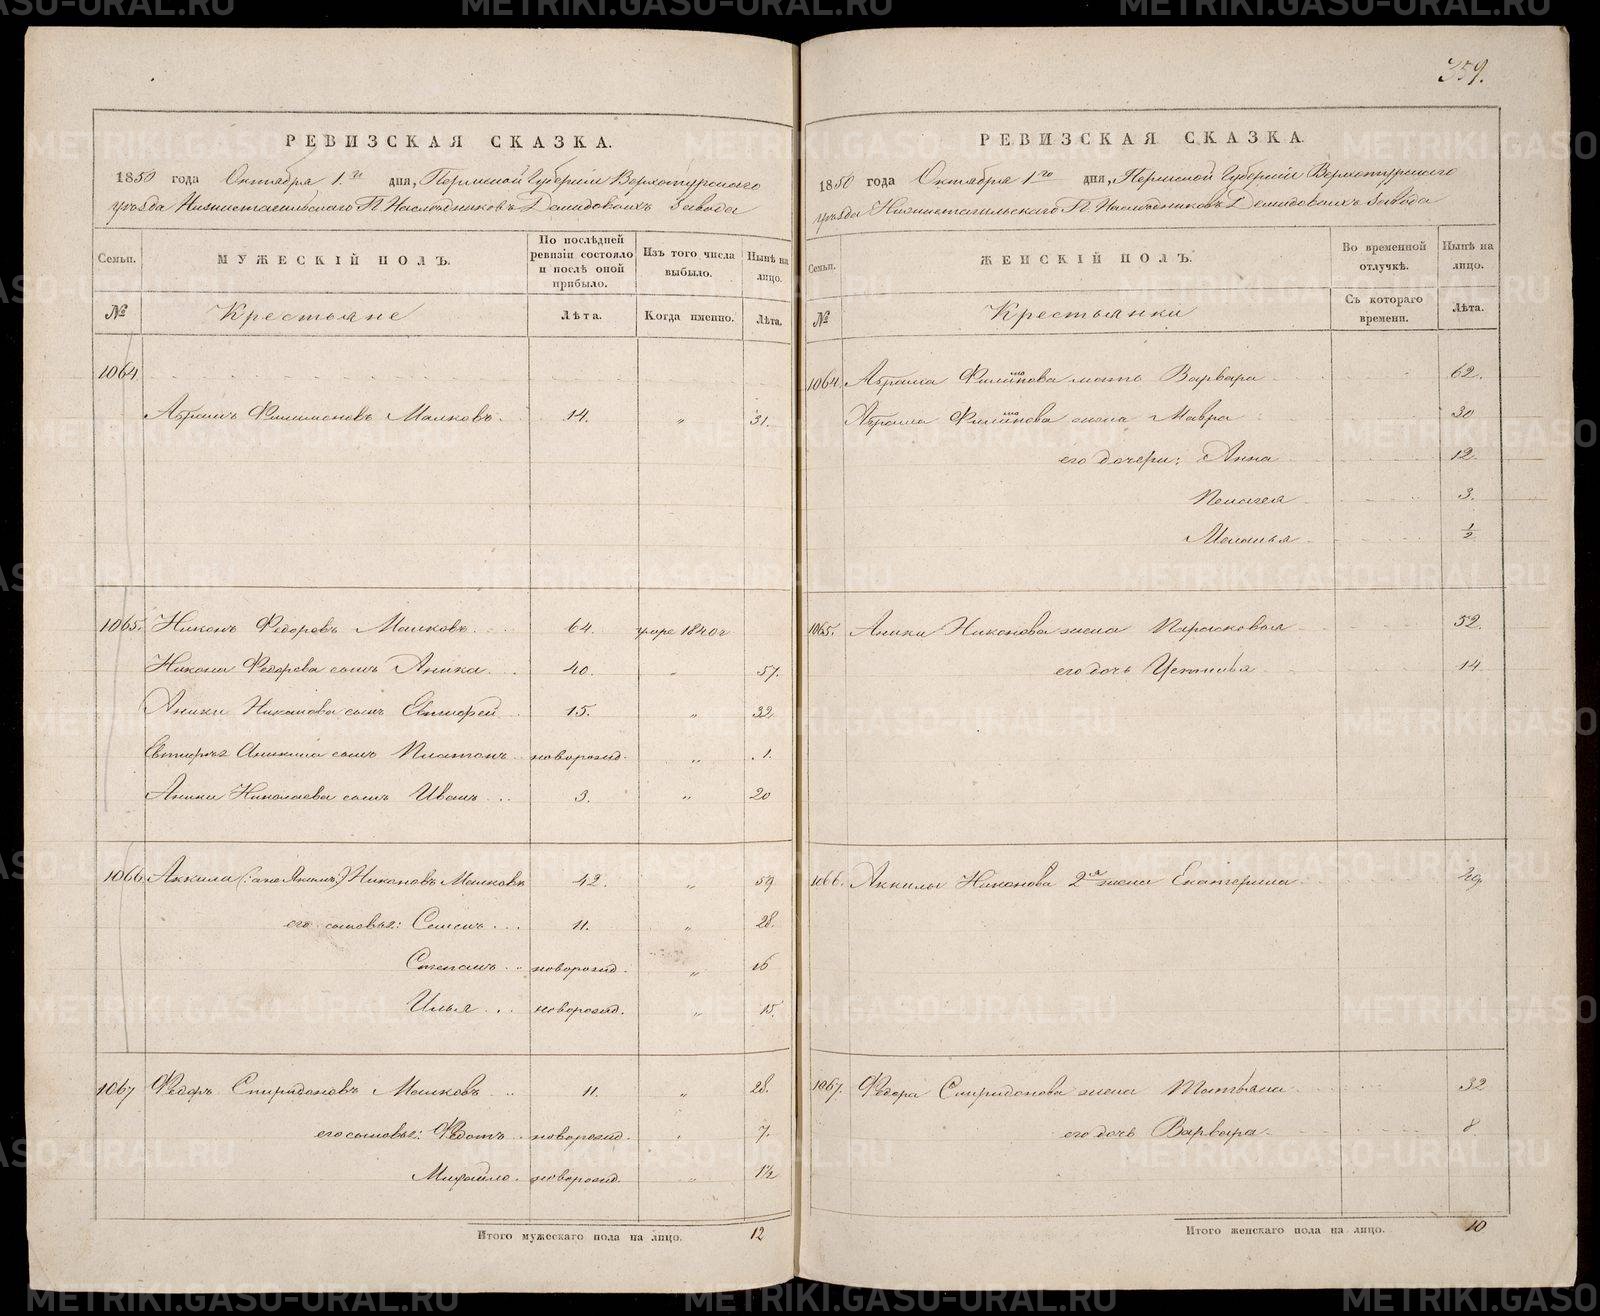 359.
РЕВИЗСКАЯ СКАЗКА.
1850 года Октября 1го дня, Пермской Губерніи Верхотурскаго
уѣзда Нижнетагильскаго Г.г. Наслѣдниковъ Демидовыхъ Завода
Семьи. МУЖЕСКІЙ ПОЛЪ. По послѣдней ревизіи состояло и послѣ оной прибыло. Изъ того числа выбыло. Нынѣ на лицо.
№ Крестьяне Лѣта. Когда именно. Лѣта.
1064.
Абрамъ Филимоновъ Малковъ 14. „ 31.
1065. Никонъ Федоровъ Малковъ 64. умре 1840 г
Никона Федорова сынъ Аника 40. „ 57.
Аники Никонова сынъ Евтифей 15. „ 32
Евтифѣя Аникина сынъ Платонъ новорожд. „ 1.
Аники Николаева сынъ Иванъ 3. „ 20
1066. Аккила (: Никоновъ Малковъ 42. „ 59
его сыновья: Семенъ 11. „ 28.
Степанъ новорожд. „ 16
Илья новорожд. „ 15.
1067 Федоръ Спиридоновъ Малковъ 11. „ 28.
его сыновья: Федотъ новорожд. „ 7.
Михайло новорожд. „ 1½
Итого мужескаго пола на лицо. 12
РЕВИЗСКАЯ СКАЗКА.
1850 года Октября 1го дня, Пермской Губерніи Верхотурскаго
уѣзда Нижнетагильскаго Г.г. Наслѣдниковъ Демидовыхъ Завода
Семьи. ЖЕНСКІЙ ПОЛЪ. Во временной отлучкѣ. Нынѣ на лицо.
№ Крестьянки Съ котораго времени. Лѣта.
1064. Абрама Филимонова мать Варвара 62.
Абрама Филимонова жена Мавра 30
его дочери: Анна 12
Пелагея 3.
Маланья ½
1065. Аники Никонова жена Парасковья 52.
его дочь Устинья 14
1066. Аккилы Никонова 2я жена Екатерина
1067. Федора Спиридонова жена Татьяна 32
его дочь Варвара 8.
Итого женскаго пола на лицо. 10
METRIKI.GASO-URAL.RU